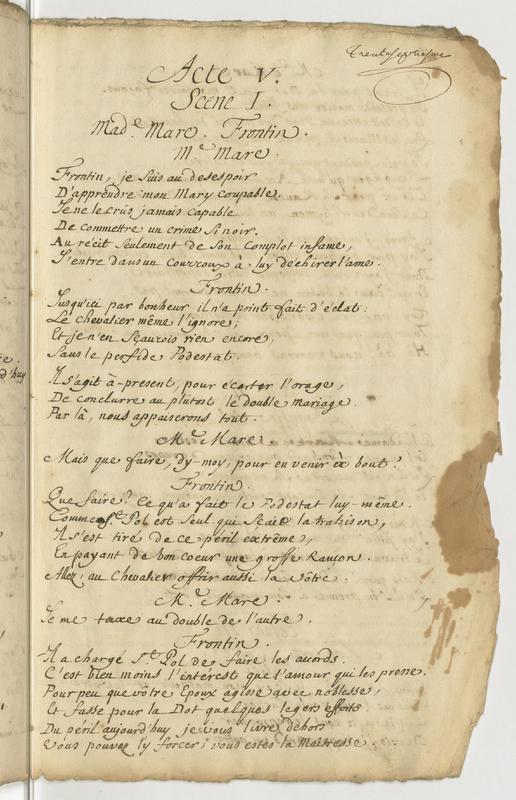 trenteseptiesme
Acte V.
Scene I.
Mad.e Mare. Frontin.
M.e Mare.
Frontin, je suis au desespoir
D'apprendre mon Mary coupable.
Je ne le crûs jamais capable
De commettre un crime si noir.
Au récit seulement de son complot infame,
J'entre dans un courroux à luy déchirer l'ame.
Frontin.
Jusqu'ici par bonheur il n'a point fait d'éclat:
Le Chevalier même l'ignore;
Et je n'en sçaurois rien encore,
Sans le perfide Podestat.
Il s'agit à-present, pour écarter l'orage,
De conclurre au plûtost le double mariage.
Par là, nous appaiserons tout.
M.e Mare
Mais que faire, dy-moy, pour en venir à bout?
Frontin.
Que faire? Ce qu'a fait le Podestat luy-même.
Comme S.t Pol est seul qui sçait la trahison,
Il s'est tiré de ce péril extrême,
En payant de bon coeur une grosse Rançon.
Allez, au Chevalier offrir aussi la vôtre.
M.e Mare.
Je me taxe au double de l'autre.
Frontin.
Il a chargé S.t Pol de faire les acords.
C'est bien moins l'interest que l'amour qui les presse.
Pour peu que vôtre Epoux agisse avec noblesse,
Et fasse pour la Dot quelques legers efforts.
Du péril aujourd'huy je vous livre dehors
Vous pouvez l'y forcer; vous estes la Maîtresse.